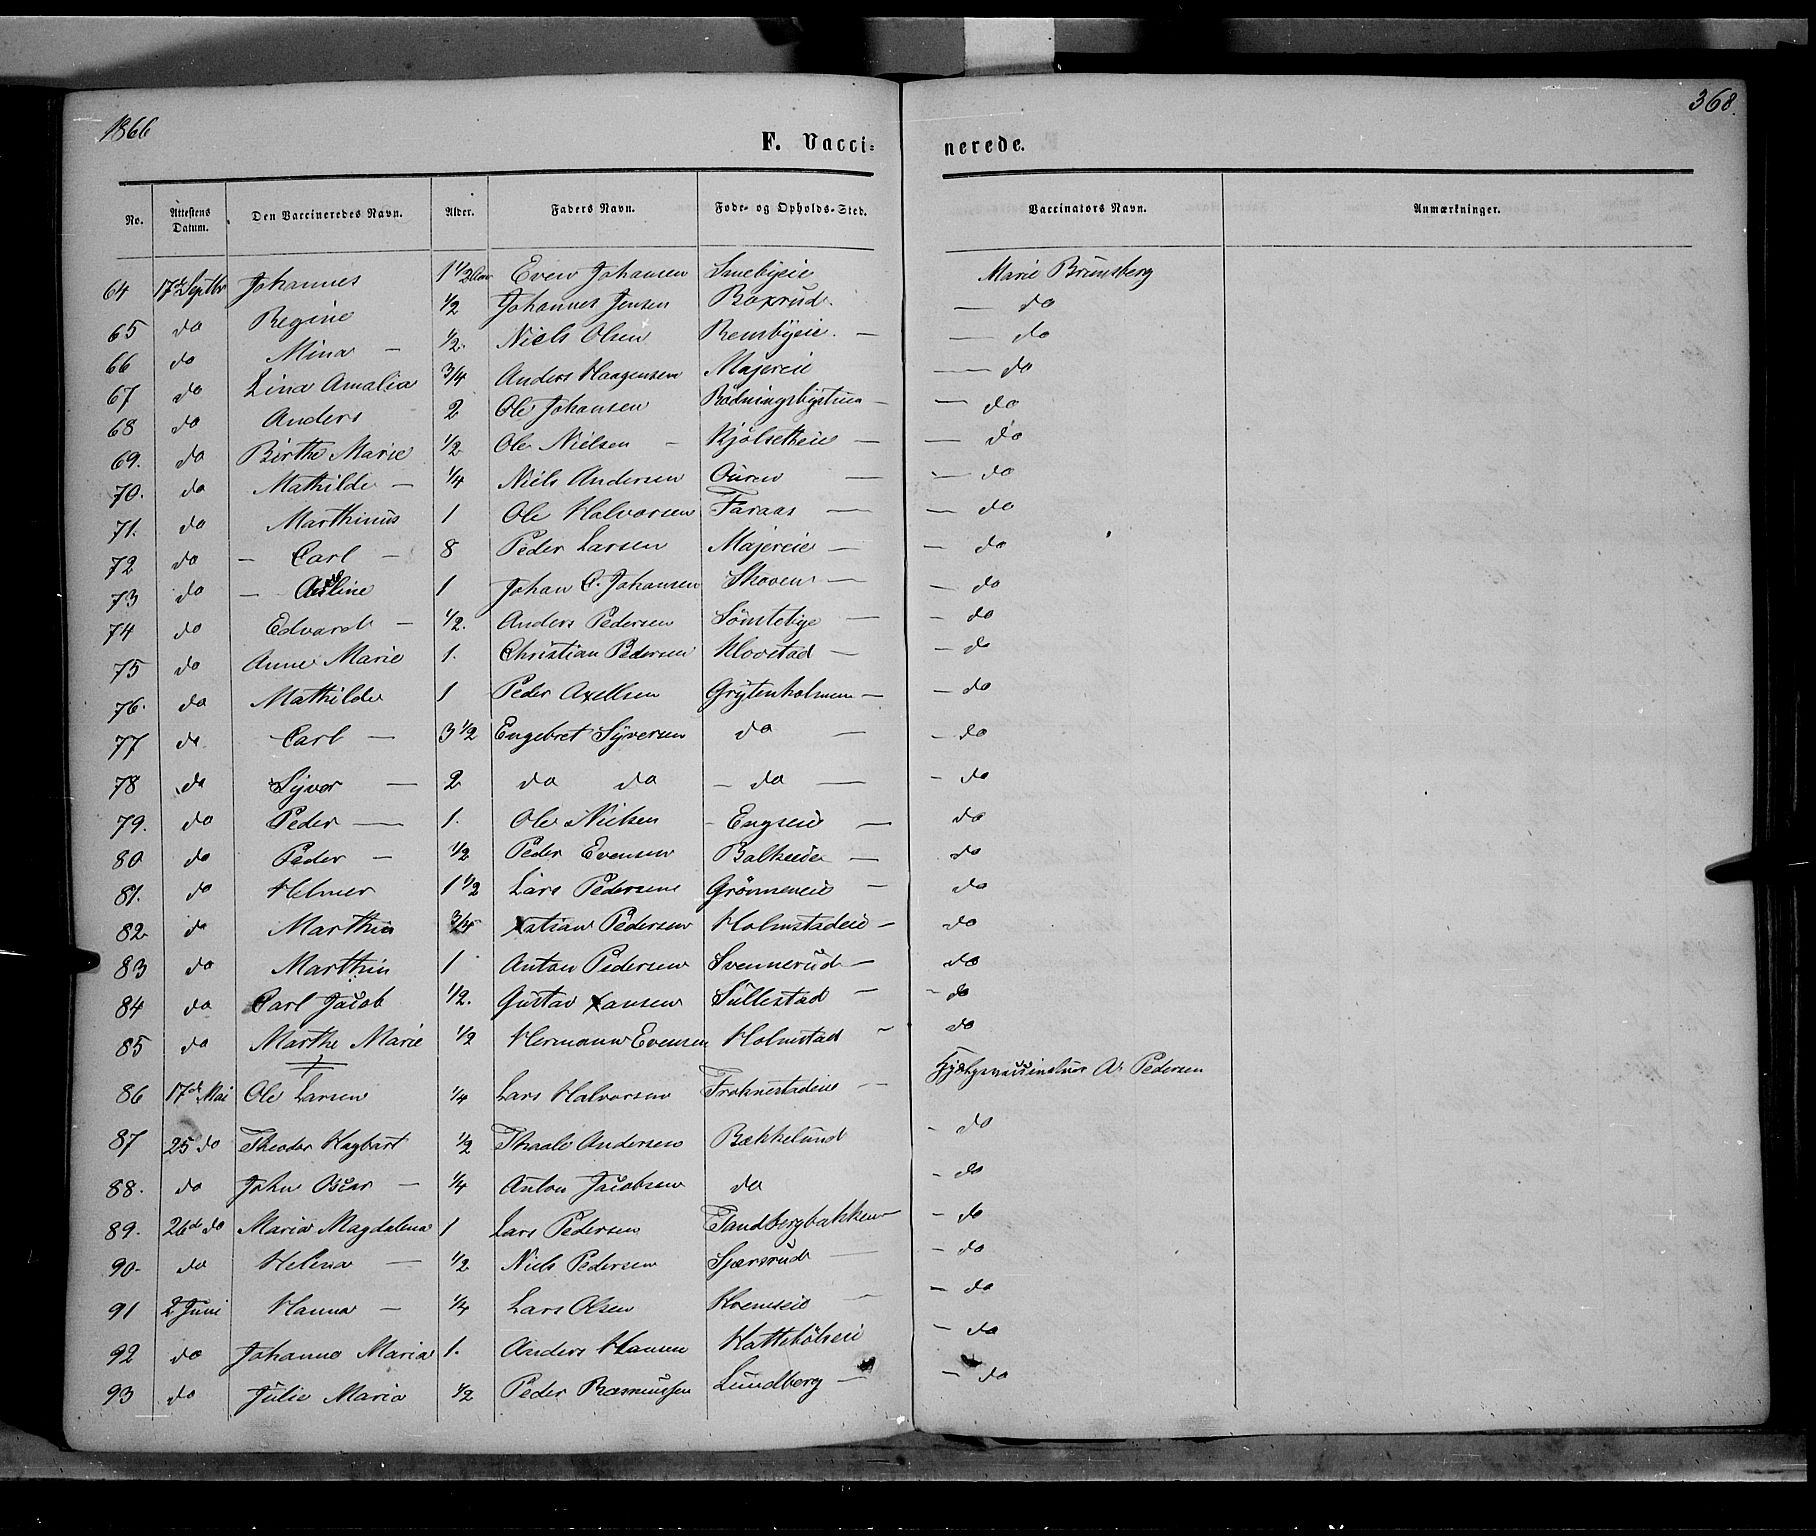 1866
368.
F. Vacci=
nerede.
No. Attestens Datum. Den Vaccineredes Navn. Alder. Faders Navn. Føde- og Opholds-Sted. Vaccinators Navn. Anmærkninger.
64 17de Septbr Johannes 1 1/2 Even Johansen Smebyeie Marie Brunsberg
65 do Regine 1/2 Johannes Jensen Boxrud. — do
66 do Mina — 1/2. Niels Olsen Rensbyeie. — — do
67 do Lina Amalia 3/4 Anders Haagensen Majereie — do
68 do Anders 2 Ole Johansen — — do
69. do Birthe Marie 1/2 Ole Nielsen — Kjølsetheie — — do
70. do Mathilde — 1/4 Niels Andersen Ouren — — do
71. do Marthinus 1 Ole Halvorsen Faraas — — do
72 do — Carl — 8 Peder Larsen Majereie — — do
73 do — 1 Johan C. Johansen Skoven — — do
74 do Edvard — 1/2. Anders Pedersen Sömstebye — — do
75 do Anne Marie 1. Christian Pedersen Klovstad — — do
76. do Mathilde 1 Peder Axelsen Grytenholmen — — do
77 do Carl — 3 1/2 Engebret Syversen do — — do
78 do Syver — 2 do do — do — — do
79. do Peder — 1. Ole Nielsen — Engseie — do
80 do Peder — 1/2 Peder Evensen Balkeeie — do
81. do Helmer 1 1/2 Lars Pedersen Grönneneie — do
82 do Marthin 3/4 Xatian Pedersen Holmstadeie — do
83 do Marthin 1 Anton Pedersen Svennerud — do
84 do Carl Jacob 1/2. Gustav Xansen Sullestad — — do
85 do Marthe Marie 1/2 Hermann Evensen Holmstad — do
86 17de Mai Ole Larsen 1/4 Lars Halvorsen Froknestadeie — A. Pedersen
87 25 do Theodor Hagbart 1/2 Thaale Andersen Bækkelund — do
88. do John Oscar — 1/4 Anton Jacobsen do — do
89. 26de do Maria Magdalena 1 Lars Pedersen Sandbergbakken — — do
90. do Helena — 1/2 Niels Pedersen Sjersrud — — do
91 2 Juni Hanna — 1/4 Lars Olsen Hvemseie — — do
92 do Johanne Maria 1. Anders Hansen — do
93 do Julie Maria 1/2 Peder Rasmussen Lundberg — — do